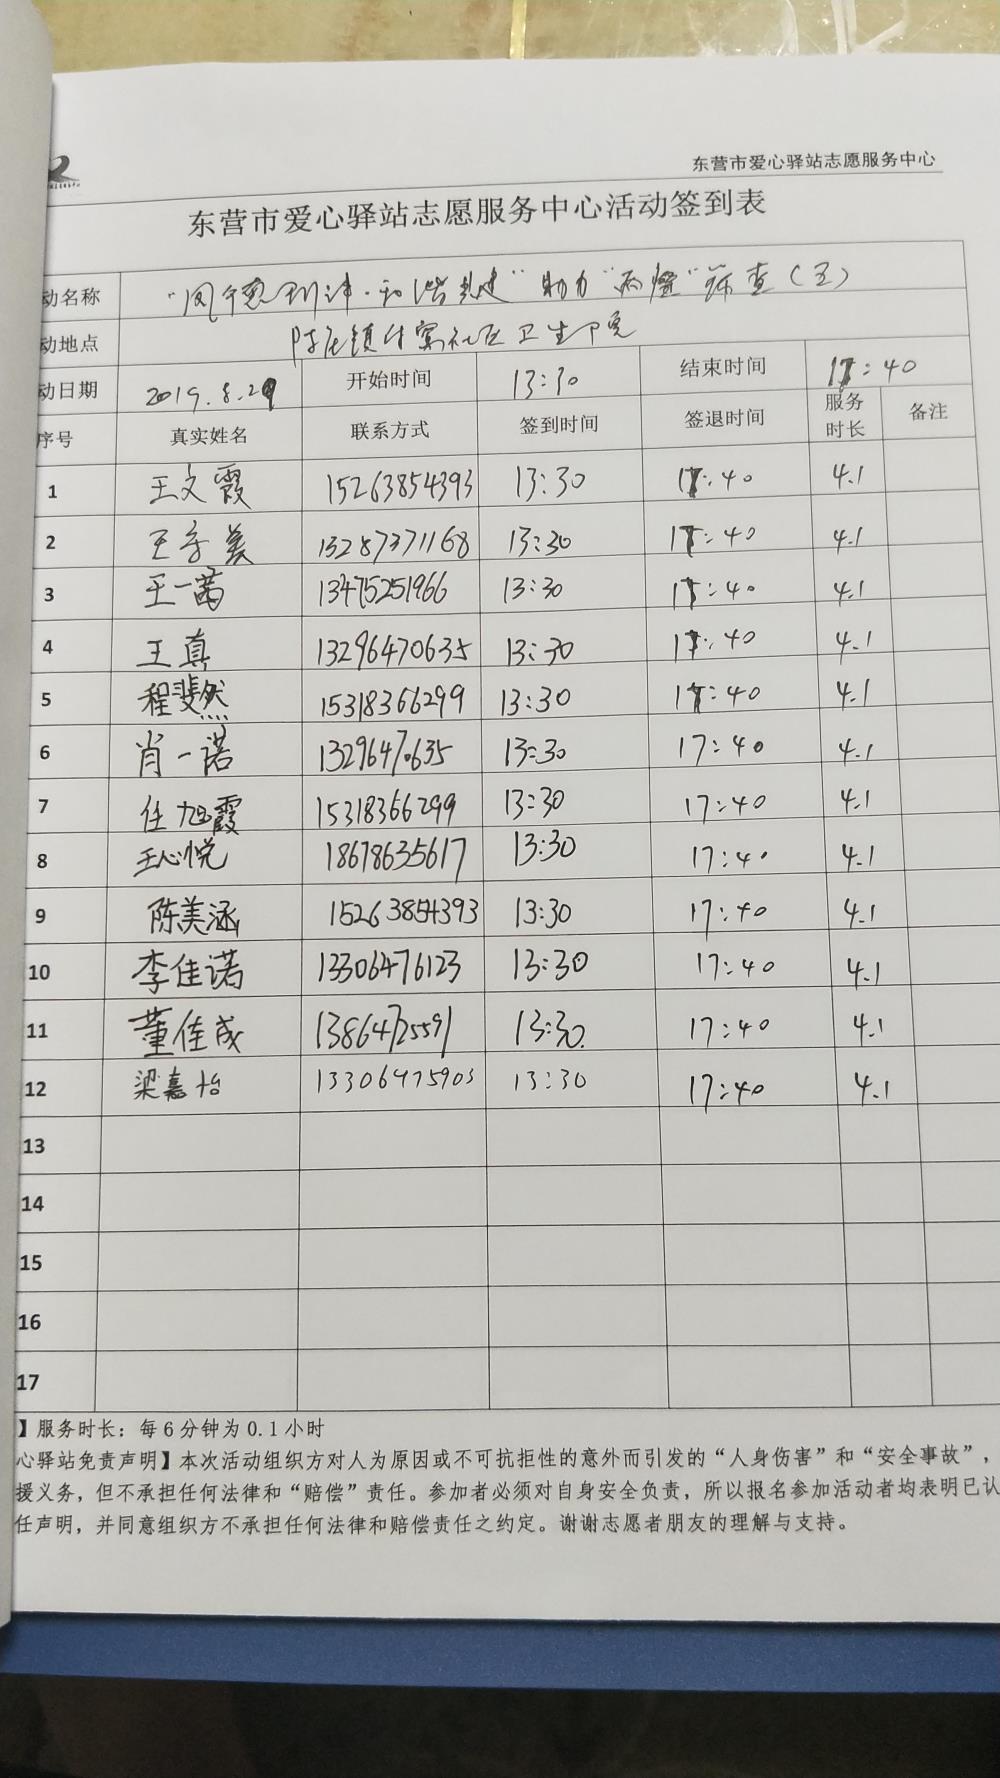 东营市爱心驿站志愿服务中心
东营市爱心驿站志愿服务中心活动签到表
动名称 "闵子惠利津·和谐共建"助力"两癌"筛查（五）
动地点 陈庄镇付窝社区卫生院
动日期 2019.8.29 开始时间 13:30 结束时间 17:40
序号 真实姓名 联系方式 签到时间 签退时间 服务时长 备注
1 王文霞 15263854393 13:30 17:40 4.1
2 王学美 13287371168 13:30 17:40 4.1
3 王一茜 13475251966 13:30 17:40 4.1
4 王真 13296470635 13:30 17:40 4.1
5 程斐然 15318366299 13:30 17:40 4.1
6 肖一诺 13296470635 13:30 17:40 4.1
7 任旭霞 15318366299 13:30 17:40 4.1
8 王心悦 18678635617 13:30 17:40 4.1
9 陈美涵 15263854393 13:30 17:40 4.1
10 李佳诺 13306476123 13:30 17:40 4.1
11 董佳成 13864725591 13:30 17:40 4.1
12 梁嘉怡 13306475903 13:30 17:40 4.1
13
14
15
16
17
】服务时长：每6分钟为0.1小时
心驿站免责声明】本次活动组织方对人为原因或不可抗拒性的意外而引发的“人身伤害”和“安全事故”，
援义务，但不承担任何法律和“赔偿”责任。参加者必须对自身安全负责，所以报名参加活动者均表明已认
任声明，并同意组织方不承担任何法律和赔偿责任之约定。谢谢志愿者朋友的理解与支持。